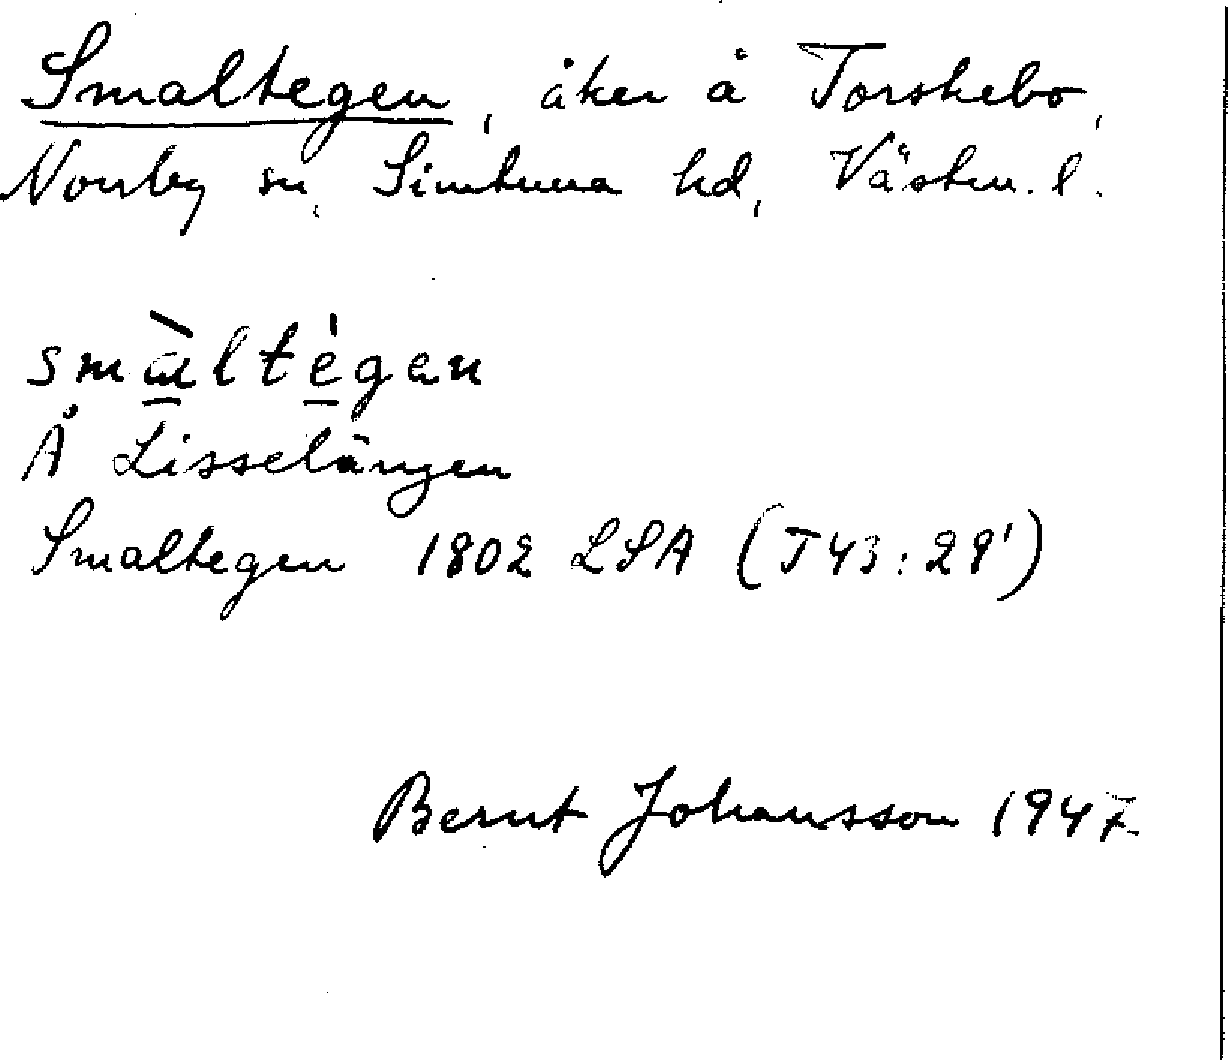 Smaltegen, åker å Torskebo,
Norrby sn, Simtuna hd, Västm. l.
smàltégen
Å Lisselängen
Smaltegen 1802 LSA (T43:28¹)
Bernt Johansson 1947